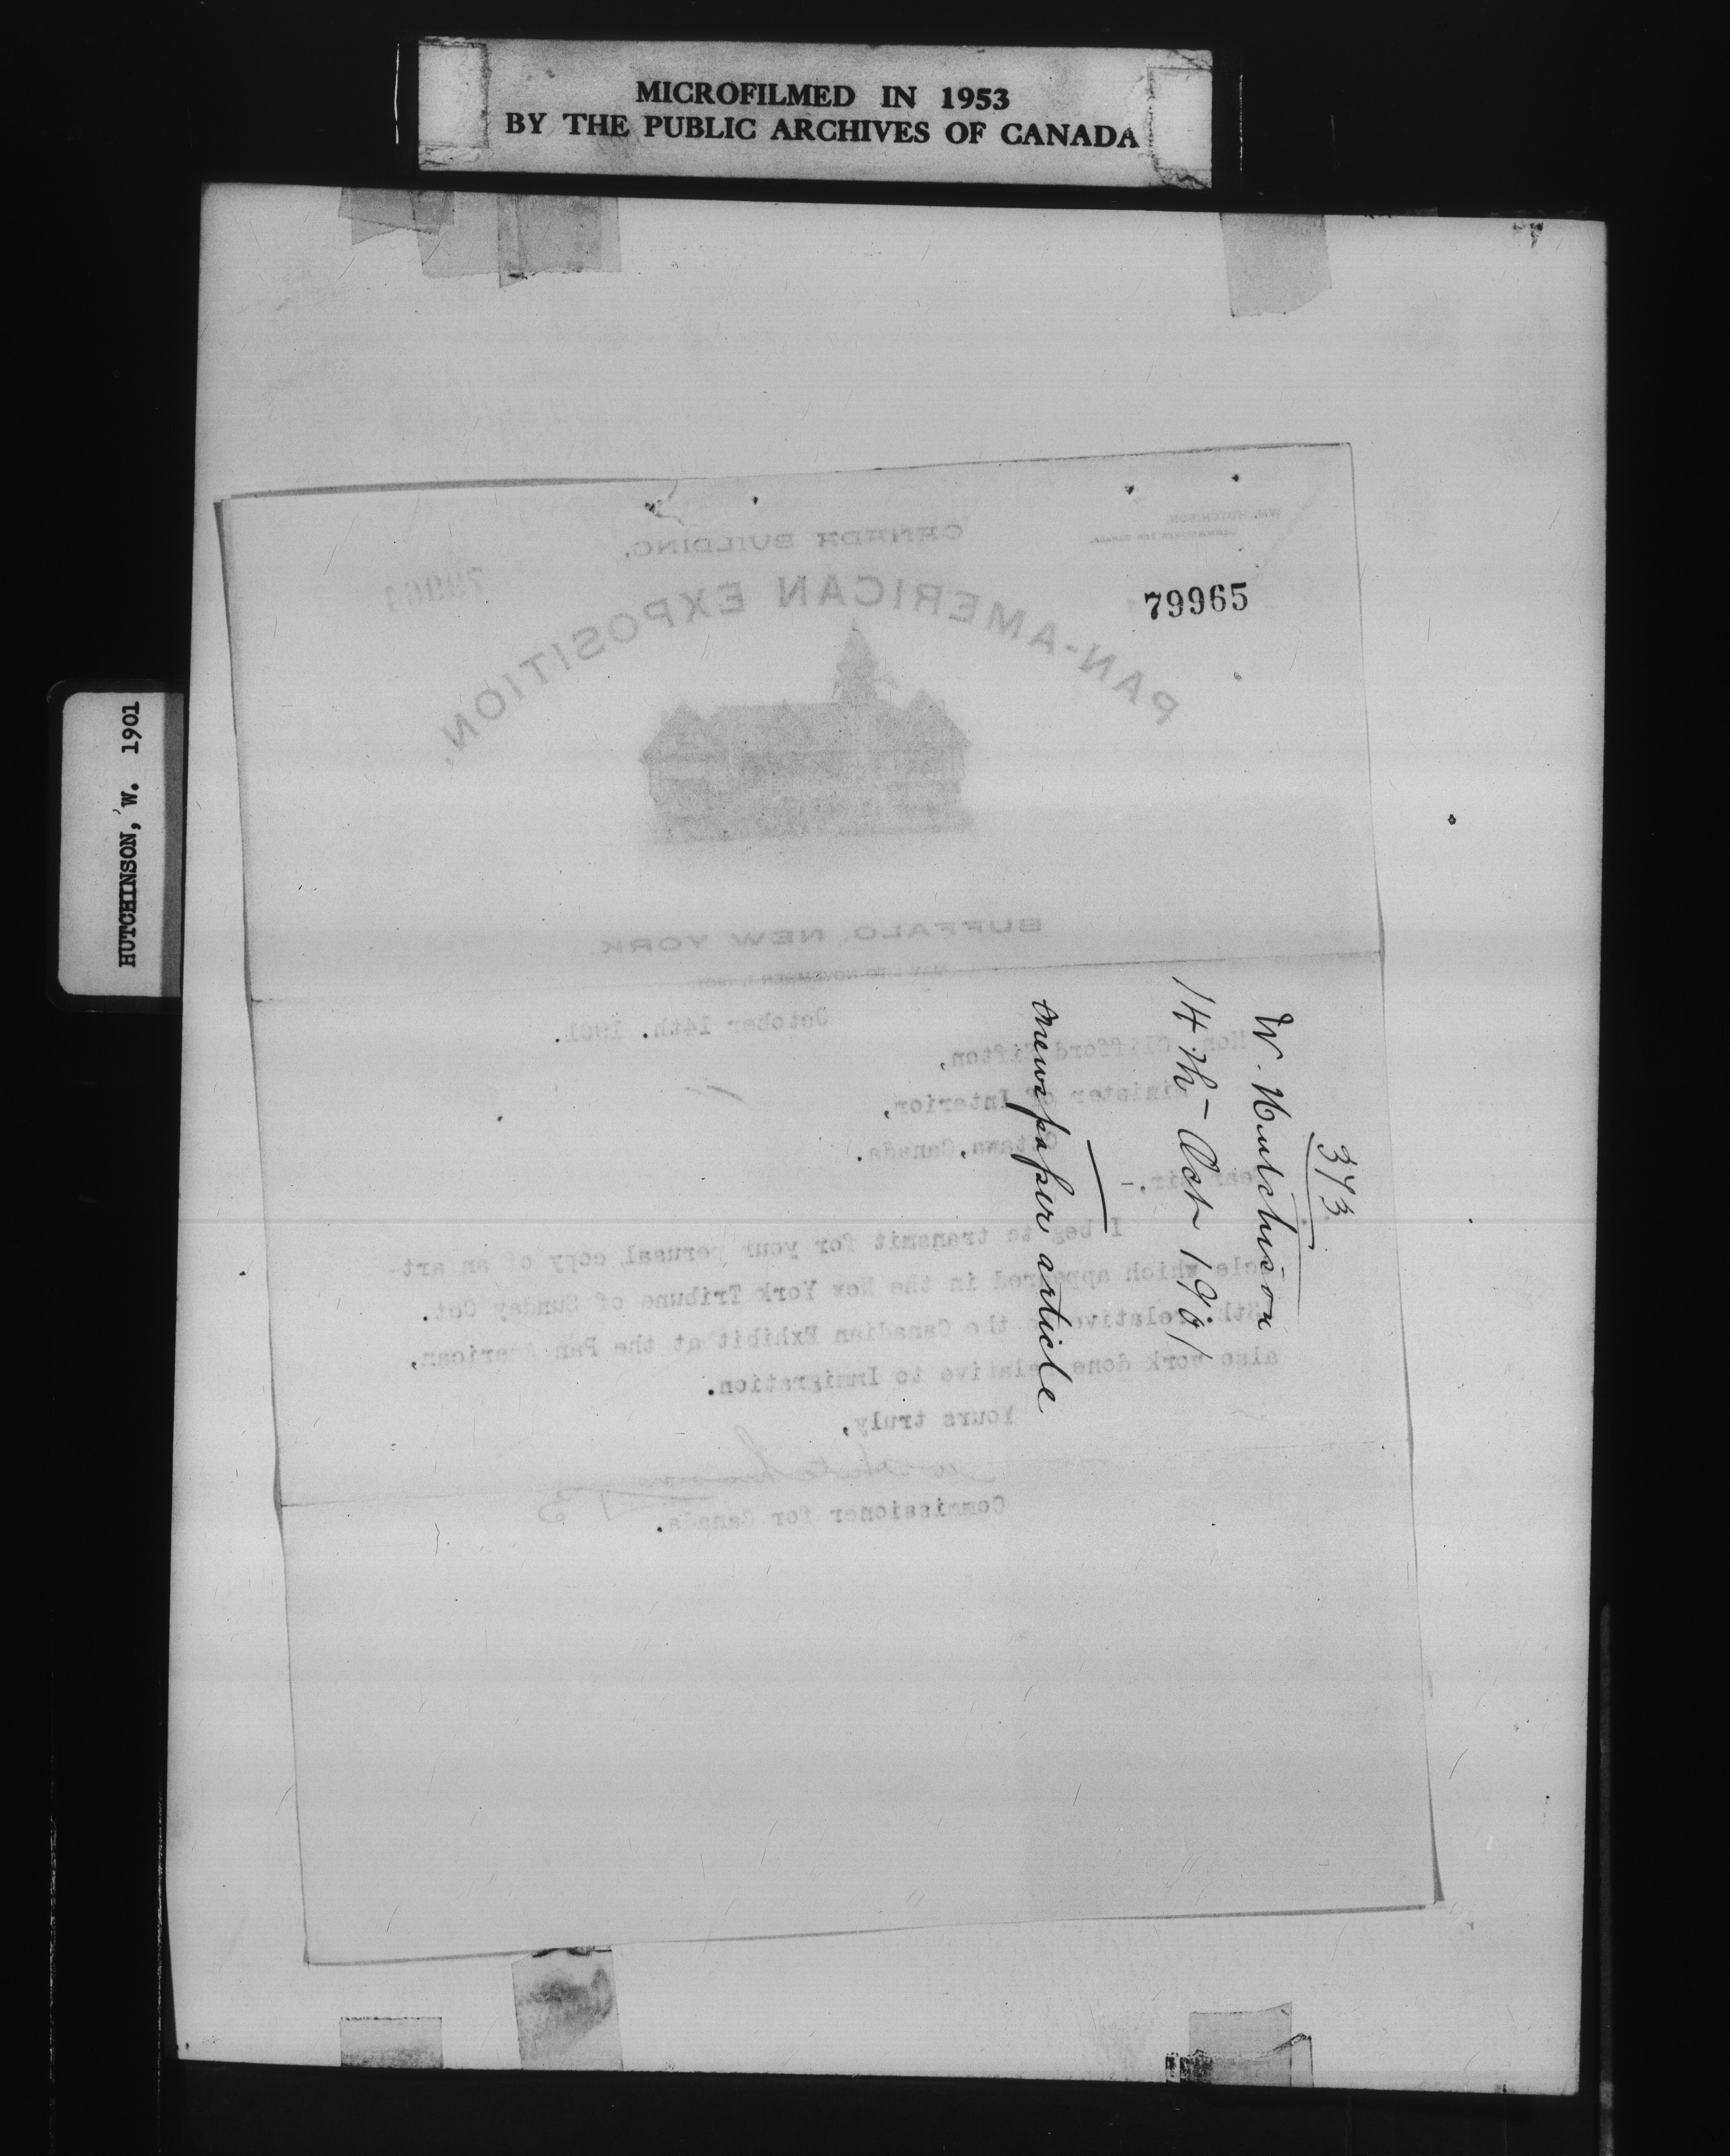 MICROFILMED IN 1953
BY THE PUBLIC ARCHIVES OF CANADA
HUTCHINSON, W. 1901
WM. HUTCHISON,
CANADA BUILDING,
PAN-AMERICAN EXPOSITION,
79964
79965
BUFFALO, NEW YORK
MAY 1 TO NOVEMBER 1, 1901
October 14th. 1901.
Hon. Clifford Sifton,
Minister of Interior,
Ottawa, Canada.
Dear Sir,-
I beg to transmit for your perusal, copy of an art-
icle which appeared in the New York Tribune of Sunday Oct.
relative to the Canadian Exhibit at the Pan American,
also work done relative to Immigration.
Yours truly,
W Hutchison
Commissioner for Canada.
373
W. Hutchison
14th - Oct 1901
newspaper article